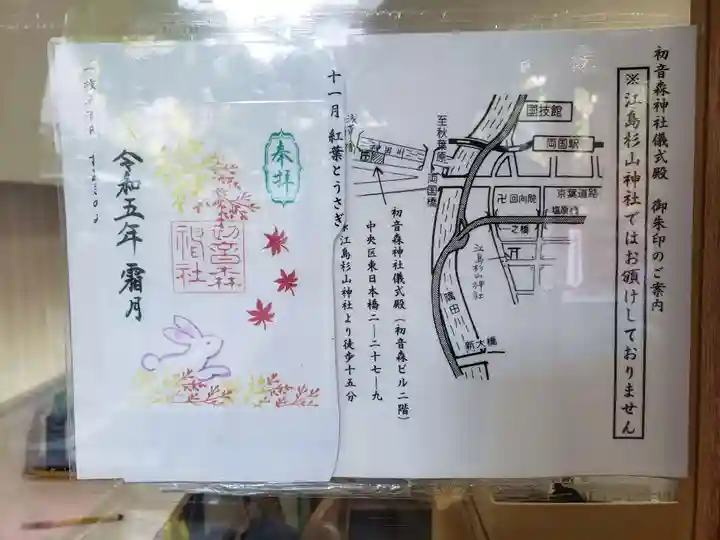 初音森神社儀式殿 御朱印のご案内
※江島杉山神社ではお頒けしておりません
国技館
両国駅
京葉道路
卍回向院
塩原
一之橋
江島杉山神社
隅田川
新大橋
両国橋
至秋葉原
浅草橋
初音森神社儀式殿(初音森ビル二階)
中央区東日本橋二―二十七―九
江島杉山神社より徒歩十五分
十一月 紅葉とうさぎ
奉拝
初音森
神社
令和五年 霜月